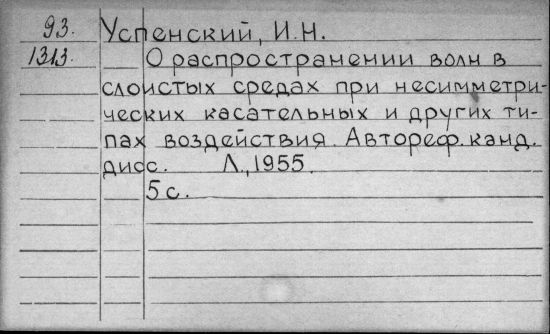 93. Успенский, И.Н.
1313. О распространении волн в
слоистых средах при несимметри-
ческих касательных и других ти-
пах воздействия. Автореф. канд.
дисс. Л., 1955.
5 с.